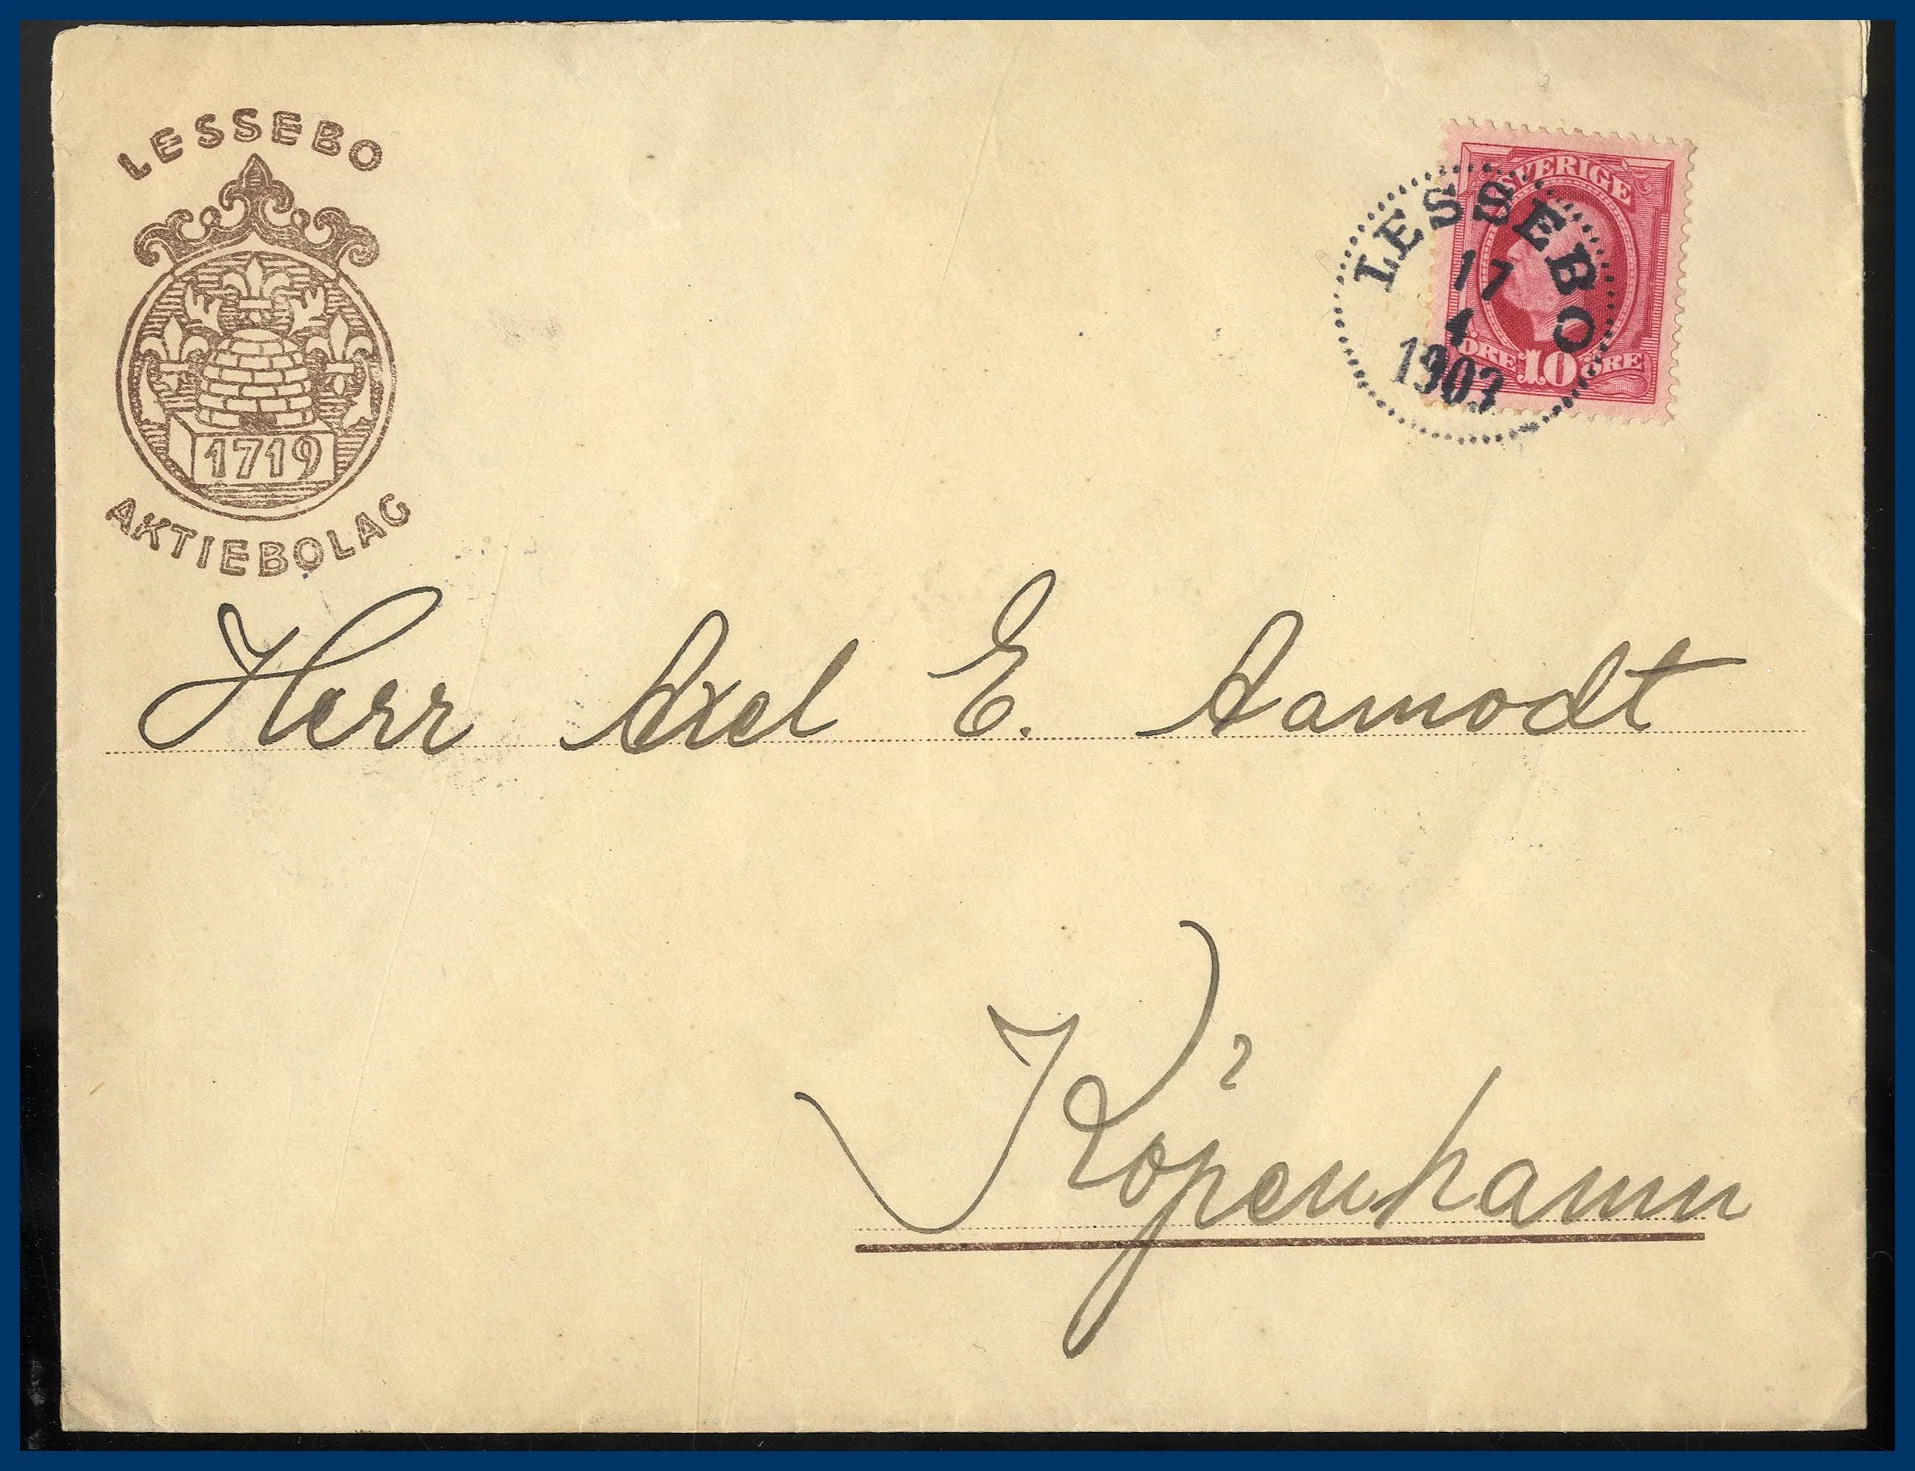 LESSEBO
1719
AKTIEBOLAG
SVERIGE
ÖRE 10 ÖRE
LESSEBO
17
4
1903
Herr Axel E. Aamodt
Köpenhamn